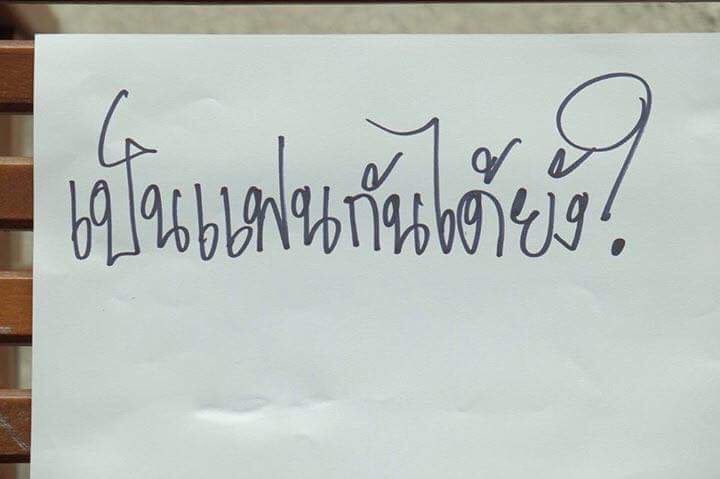 เป็นแฟนกันได้ยัง?